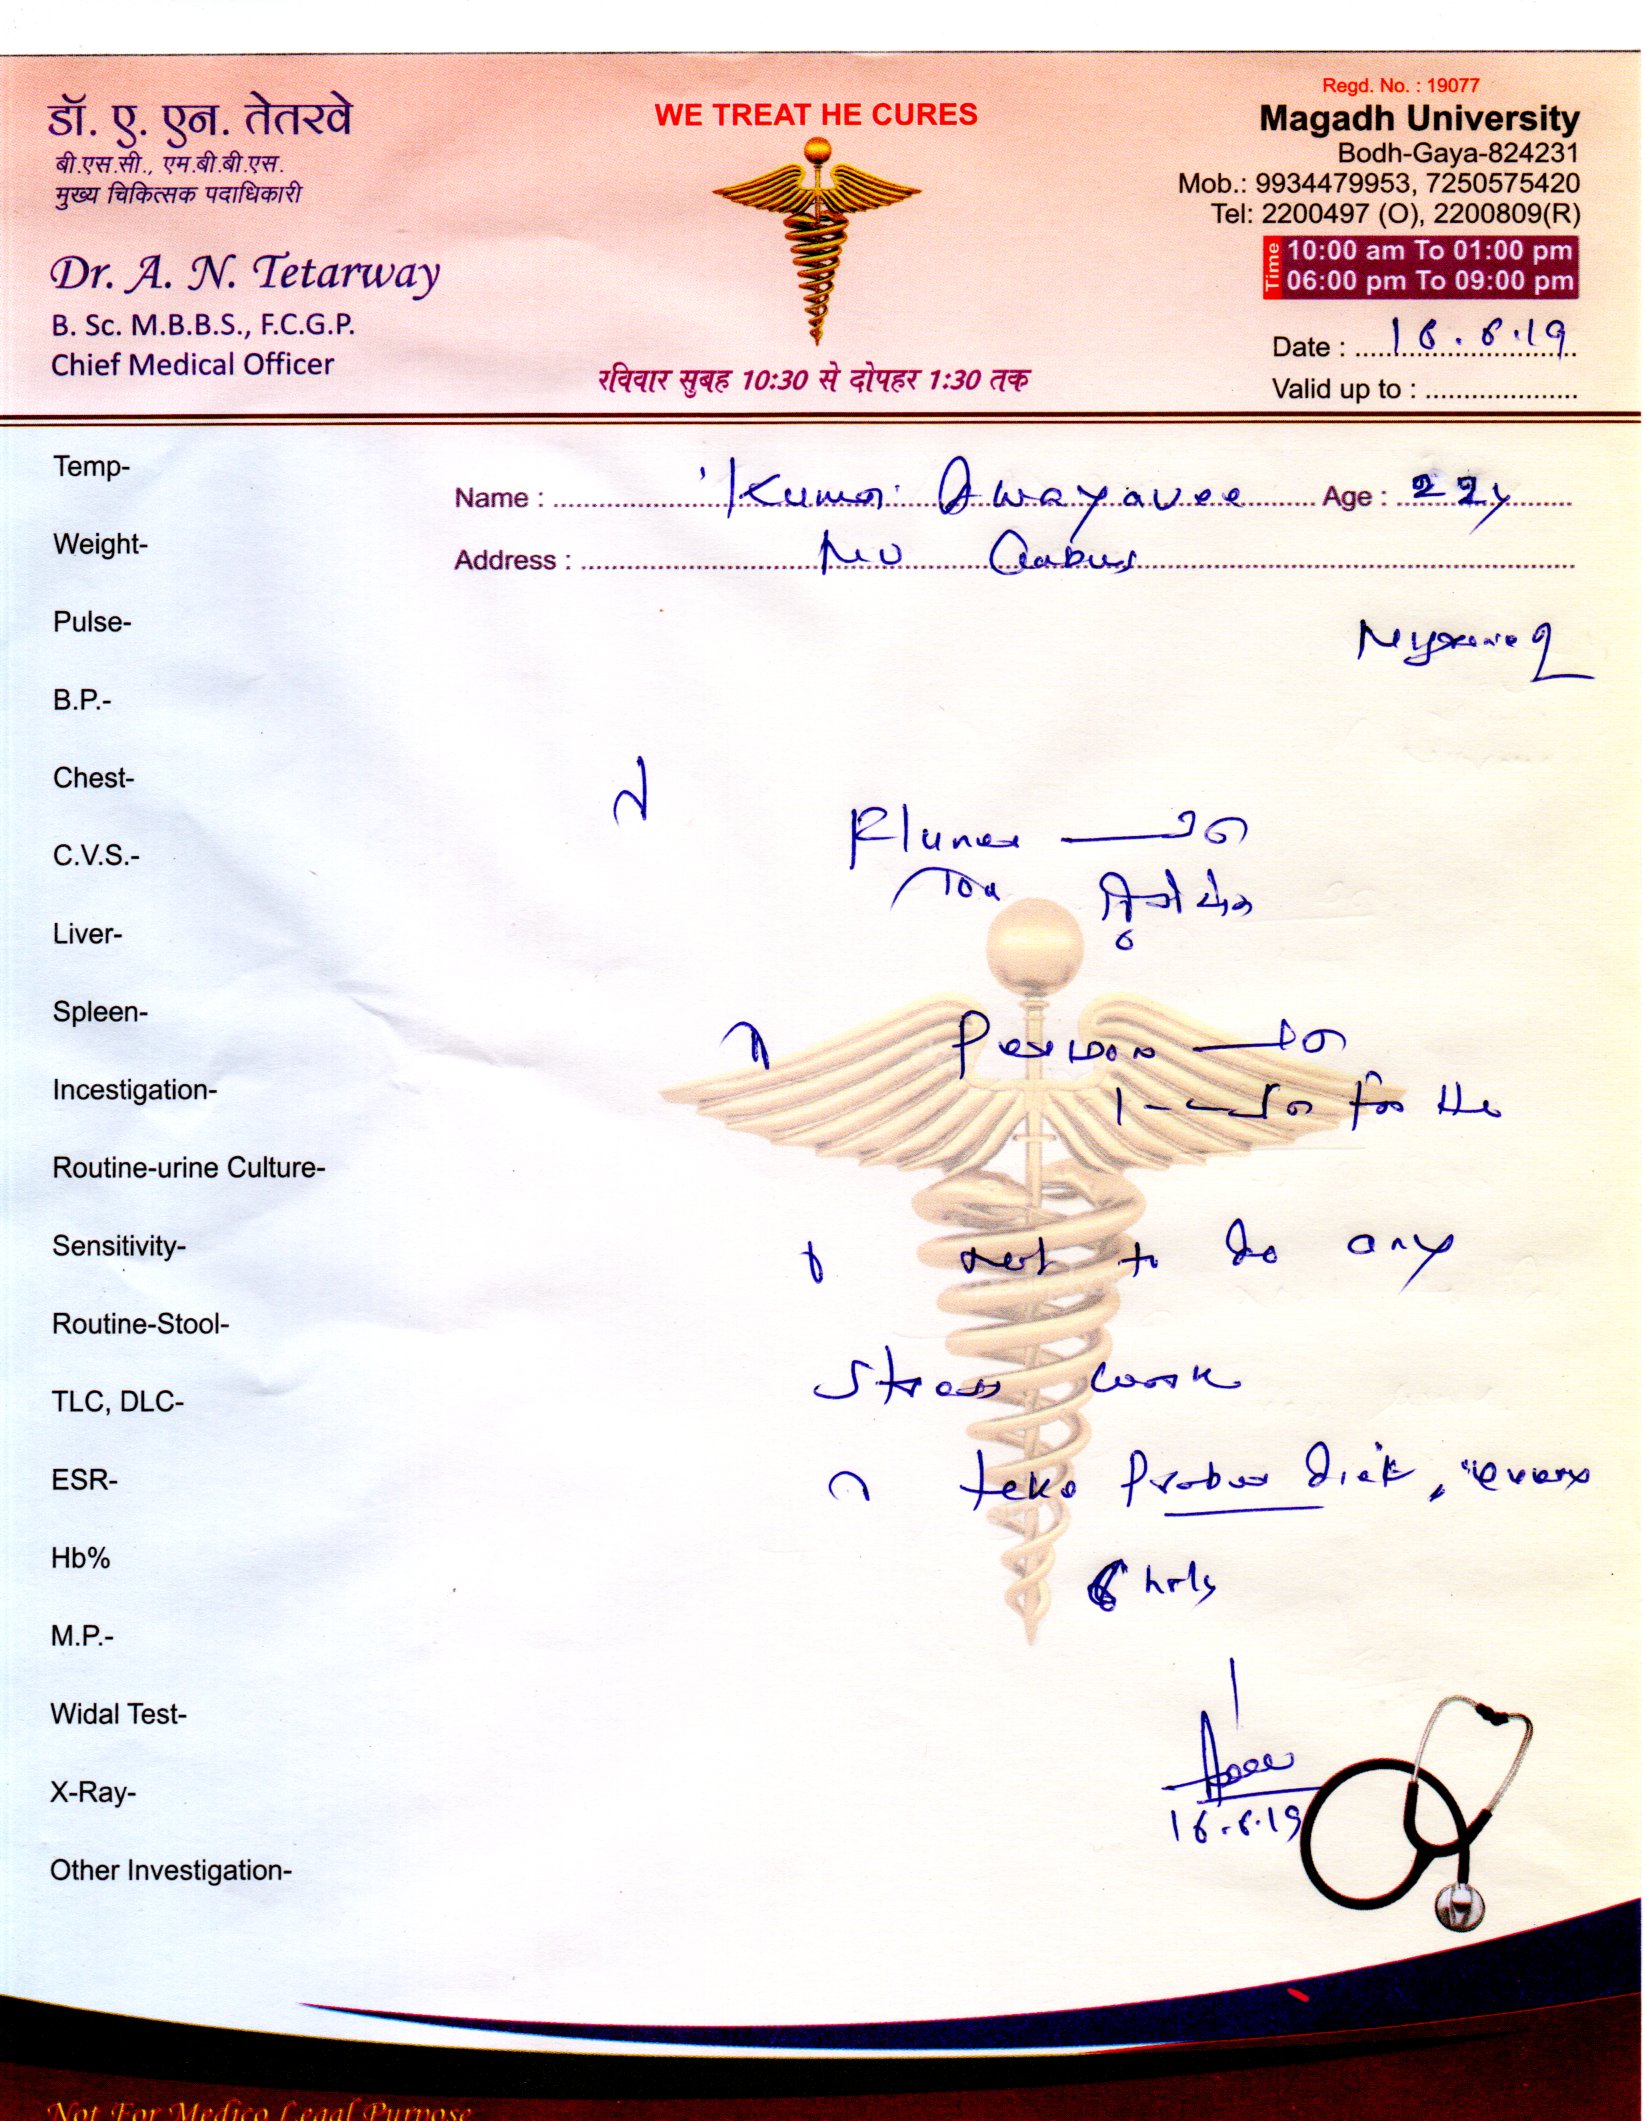 डॉ. ए. एन. तेतरवे
बी.एस.सी., एम.बी.बी.एस.
मुख्य चिकित्सक पदाधिकारी
Dr. A. N. Tetarway
B. Sc. M.B.B.S., F.C.G.P.
Chief Medical Officer
WE TREAT HE CURES
रविवार सुबह 10:30 से दोपहर 1:30 तक
Regd. No. : 19077
Magadh University
Bodh-Gaya-824231
Mob.: 9934479953, 7250575420
Tel: 2200497 (O), 2200809(R)
Time
10:00 am To 01:00 pm
06:00 pm To 09:00 pm
Date : 16.6.19
Valid up to :
Name : Kumar Age : 22y
Address : MU
Temp-
Weight-
Pulse-
B.P.-
Chest-
C.V.S.-
Liver-
Spleen-
Incestigation-
Routine-urine Culture-
Sensitivity-
Routine-Stool-
TLC, DLC-
ESR-
Hb%
M.P.-
Widal Test-
X-Ray-
Other Investigation-
not to do any
stress work
take diet, every
6 hrly
16.6.19
Not For Medico Legal Purpose